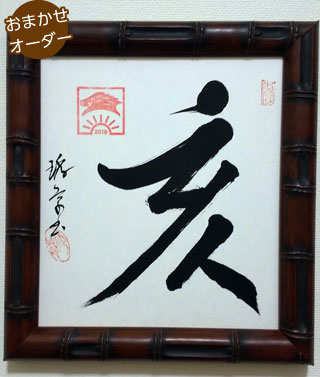 おまかせ
オーダー
亥
2019